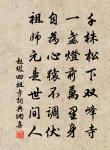 千株松下雙峰寺
一盞燈前萬里身
自為心猿不調伏
祖師元是世間人
赵嘏四祖寺詞典網書